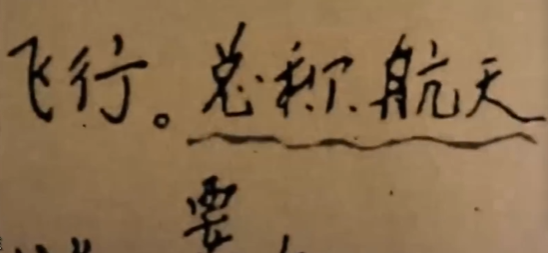 飞行。总称航天
要